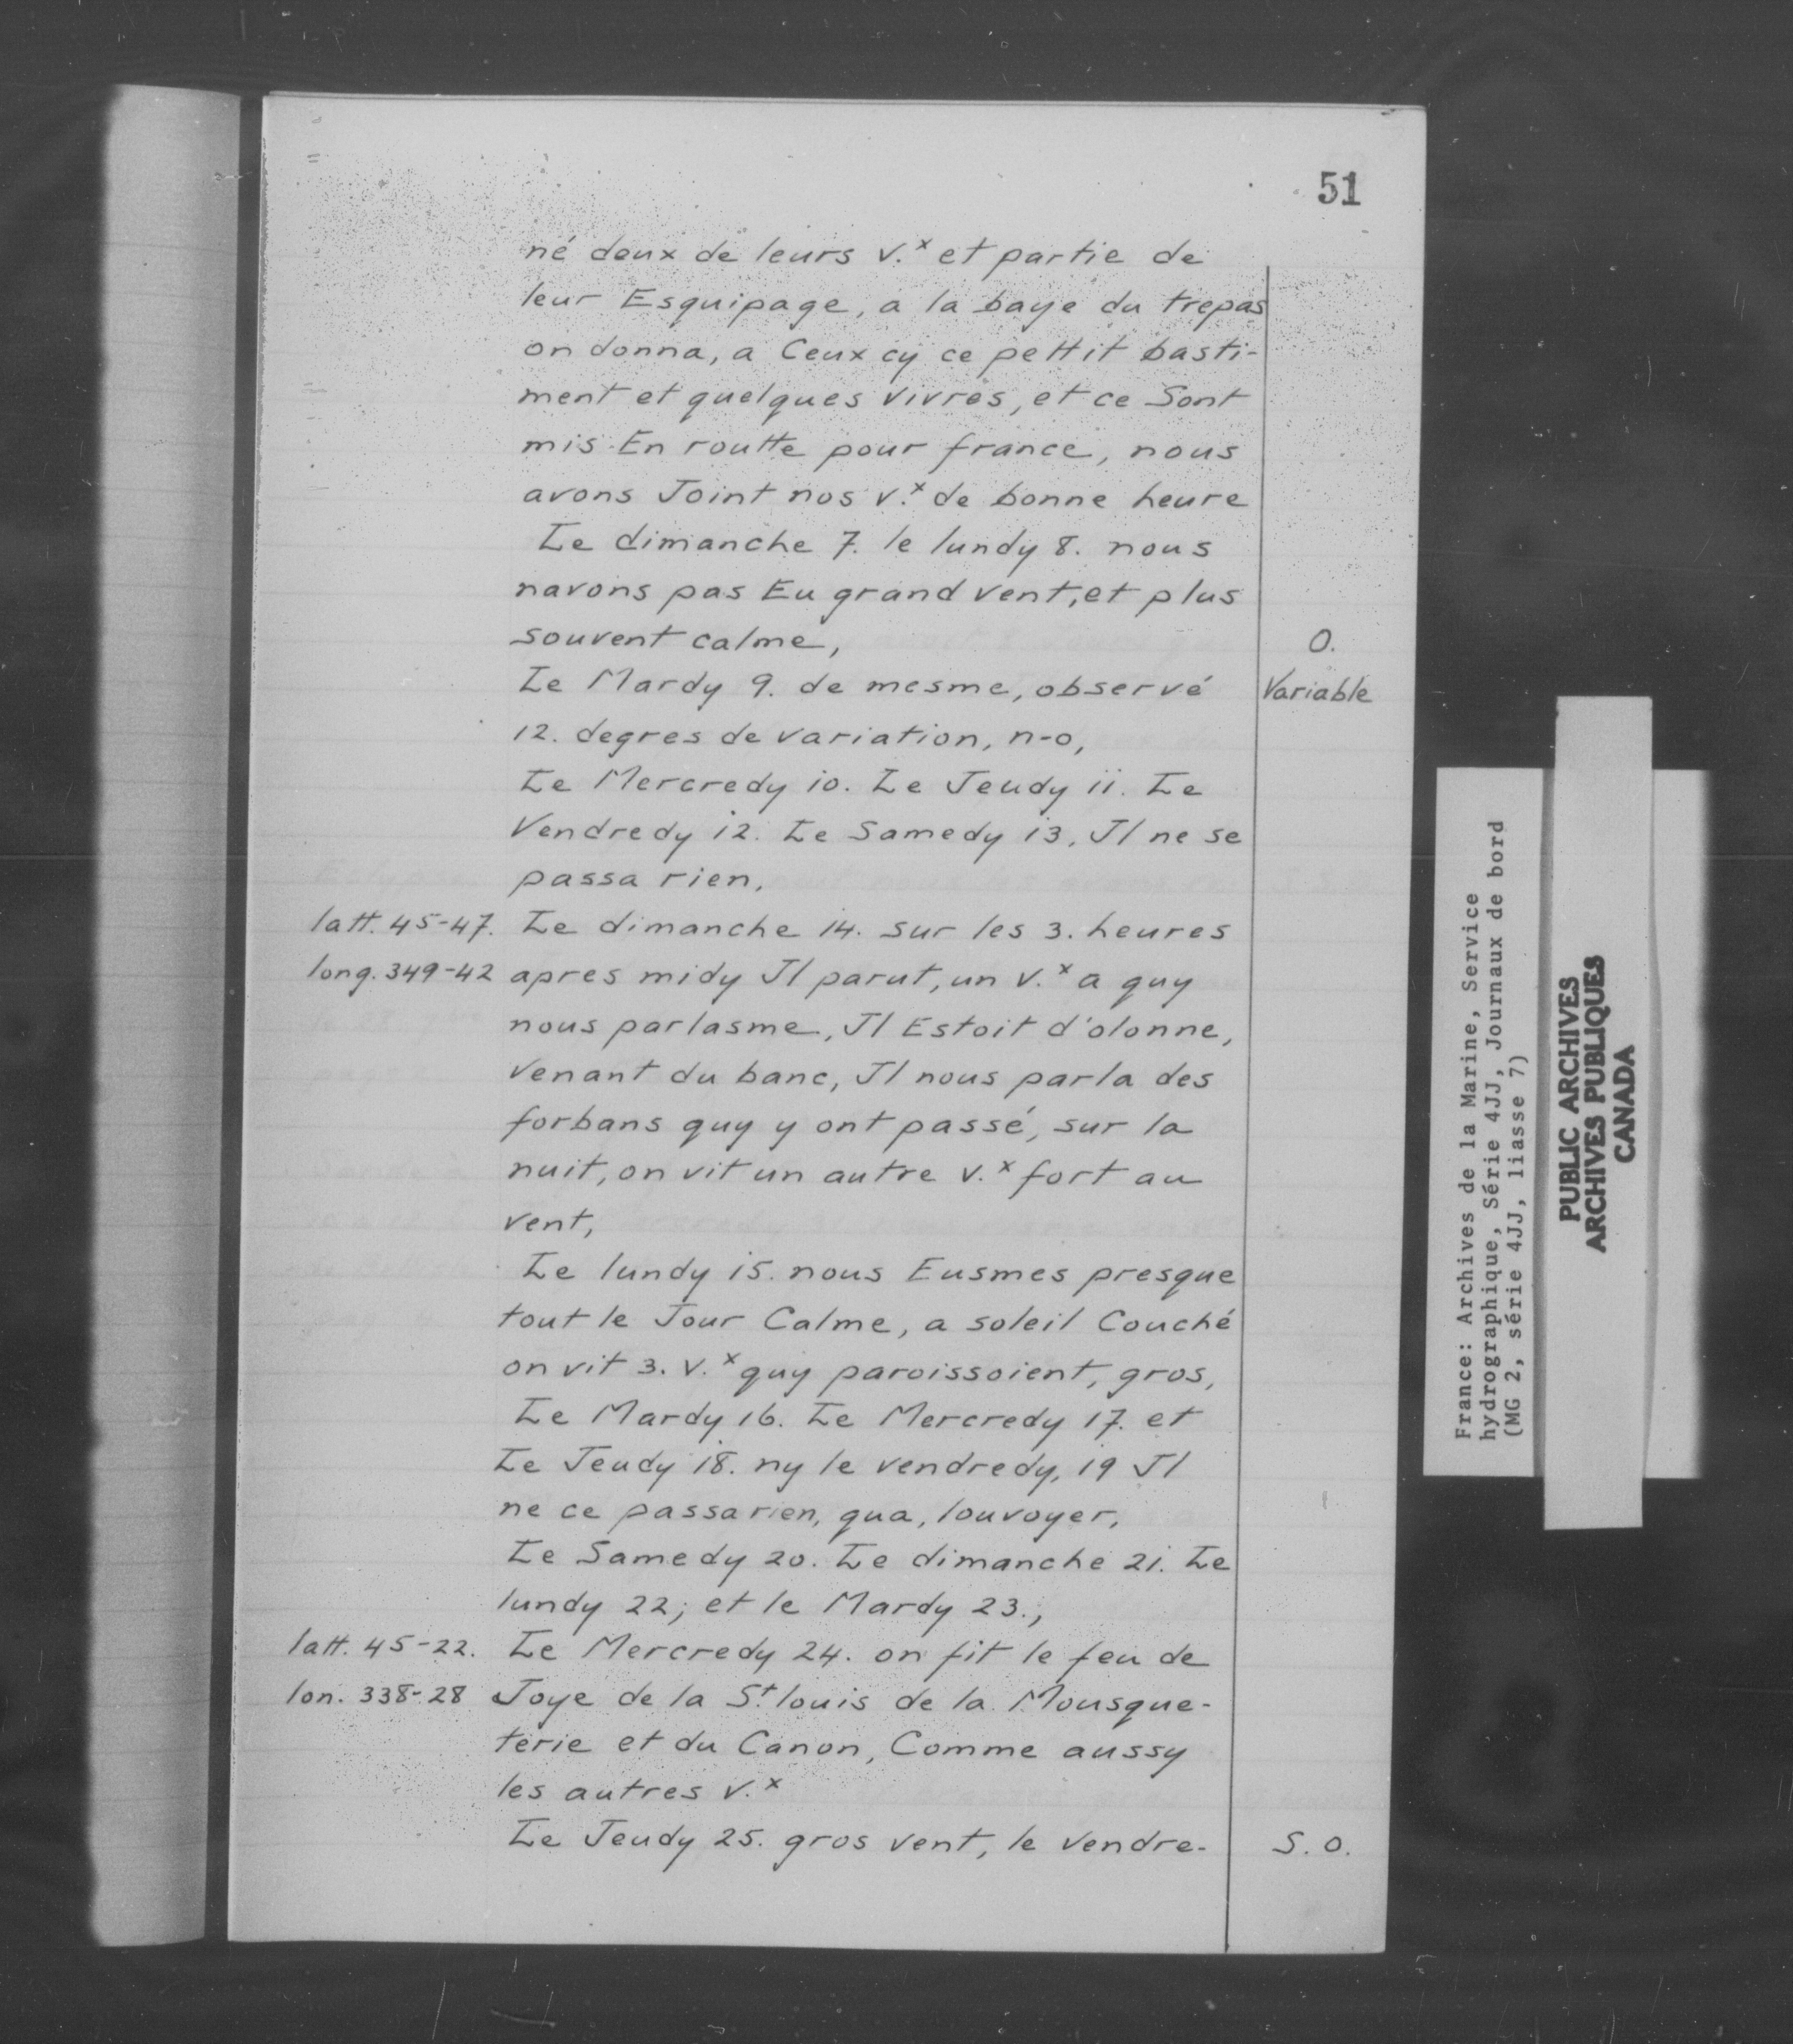 51
né deux de leurs v.x et partie de
leur Esquipage, a la baye du trepas
on donna, a Ceux cy ce pettit basti-
ment et quelques vivres, et ce Sont
mis En routte pour france, nous
avons Joint nos v.x de bonne heure
Le dimanche 7. le lundy 8. nous
navons pas Eu grand vent, et plus
souvent calme,
O.
Le Mardy 9. de mesme, observé
Variable
12. degres de variation, n-o,
Le Mercredy 10. Le Jeudy 11. Le
Vendredy 12. Le Samedy 13, Jl ne se
passa rien,
latt. 45-47. Le dimanche 14. sur les 3. heures
long. 349-42 apres midy Jl parut, un v.x a quy
nous parlasme, Jl Estoit d'olonne,
venant du banc, Jl nous parla des
forbans quy y ont passé, sur la
nuit, on vit un autre v.x fort au
vent,
Le lundy 15. nous Eusmes presque
tout le Jour Calme, a soleil Couché
on vit 3. v.x quy paroissoient, gros,
Le Mardy 16. Le Mercredy 17. et
Le Jeudy 18. ny le vendredy, 19 Jl
ne ce passa rien, qua, louvoyer,
Le Samedy 20. Le dimanche 21. Le
lundy 22; et le Mardy 23.,
latt. 45-22. Le Mercredy 24. on fit le feu de
lon. 338-28 Joye de la St. louis de la Mousque-
terie et du Canon, Comme aussy
les autres v.x
Le Jeudy 25. gros vent, le vendre-
S. O.
France: Archives de la Marine, Service
hydrographique, Série 4JJ, Journaux de bord
(MG 2, série 4JJ, liasse 7)
PUBLIC ARCHIVES
ARCHIVES PUBLIQUES
CANADA